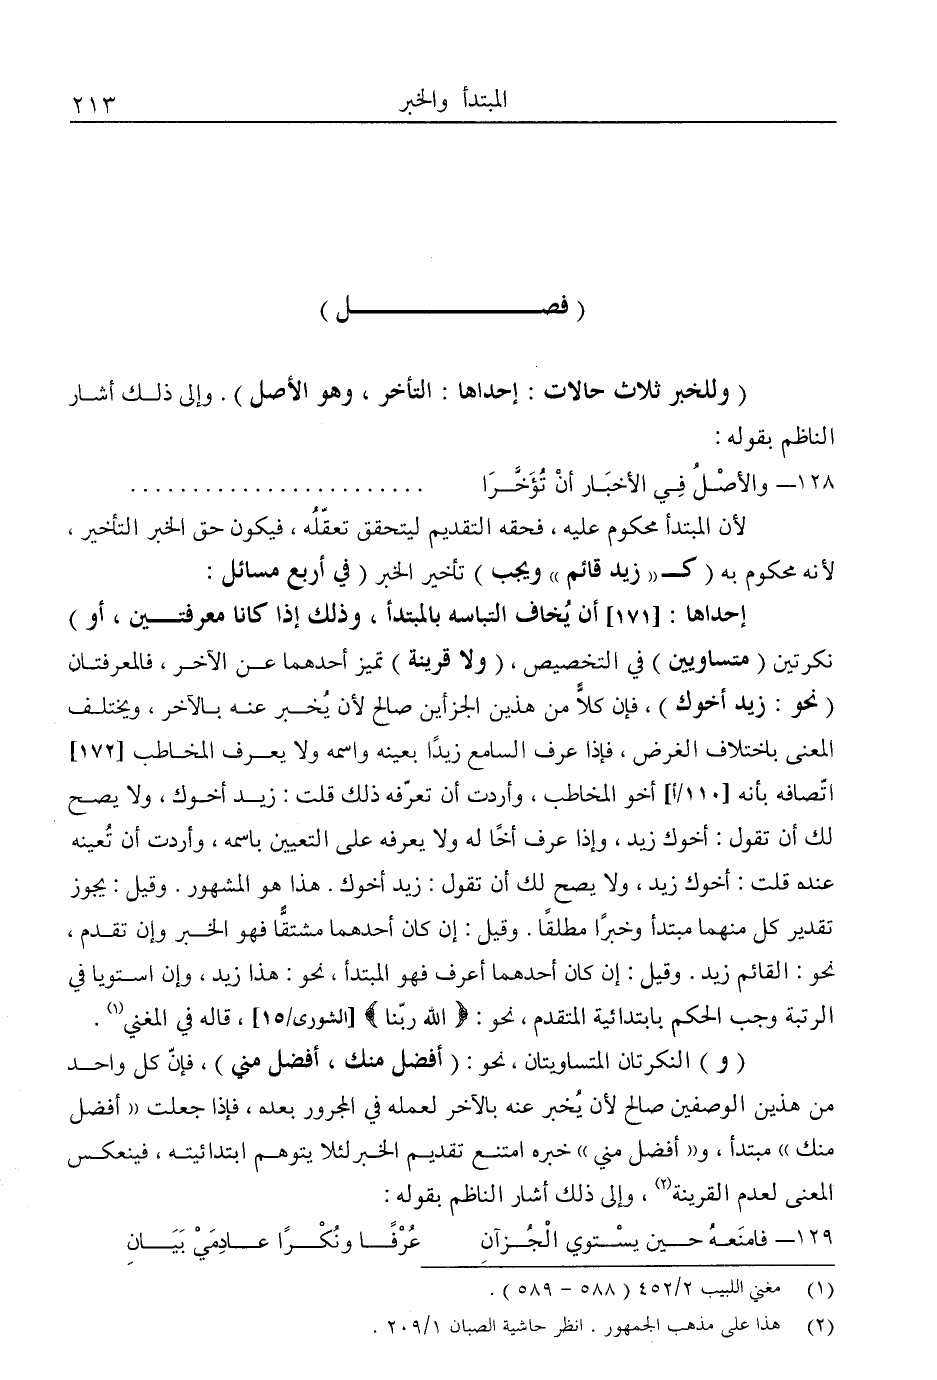 المبتدأ والخبر ٢١٣
( فصــــــــــــل )
( وللخبر ثلاث حالات : إحداها : التأخر ، وهو الأصل ) . وإلى ذلـك أشـار
الناظم بقوله :
١٢٨ــ والأصْـلُ فِـي الأخبَـار أنْ تُؤَخَّـرَا . . . . . . . . . . . . . . . . . . . . . . . .
لأن المبتدأ محكوم عليه ، فحقه التقديم ليتحقق تعقّلُه ، فيكون حق الخبر التأخير ،
لأنه محكوم به ( كـ « زيد قائم » ويجب ) تأخير الخبر ( في أربع مسائل :
إحداها : [١٧١] أن يُخاف التباسه بالمبتدأ ، وذلك إذا كانا معرفتـــين ، أو )
نكرتين ( متساويين ) في التخصيص ، ( ولا قرينة ) تميز أحدهما عـن الآخـر ، فالمعرفتـان
( نحو : زيد أخوك ) ، فإن كلاًّ من هذين الجزأين صالح لأن يُخـبر عنـه بـالآخر ، ويختلـف
المعنى باختلاف الغرض ، فإذا عرف السامع زيدًا بعينه واسمه ولا يعـرف المخـاطب [١٧٢]
اتّصافه بأنه [١١٠/أ] أخو المخاطب ، وأردت أن تعرّفه ذلك قلت : زيـد أخـوك ، ولا يصـح
لك أن تقول : أخوك زيد ، وإذا عرف أخًا له ولا يعرفه على التعيين باسمه ، وأردت أن تُعينه
عنده قلت : أخوك زيد ، ولا يصح لك أن تقول : زيد أخوك . هذا هو المشهور . وقيل : يجوز
تقدير كل منهما مبتدأ وخبرًا مطلقًا . وقيل : إن كان أحدهما مشتقًّا فهو الخـبر وإن تقـدم ،
نحو : القائم زيد . وقيل : إن كان أحدهما أعرف فهو المبتدأ ، نحو : هذا زيد ، وإن استويا في
الرتبة وجب الحكم بابتدائية المتقدم ، نحو : ﴿ الله ربّنا ﴾ [الشورى/١٥] ، قاله في المغني(١) .
( و ) النكرتان المتساويتان ، نحو : ( أفضل منك ، أفضل مني ) ، فإنّ كل واحـد
من هذين الوصفين صالح لأن يُخبر عنه بالآخر لعمله في المجرور بعده ، فإذا جعلت « أفضل
منك » مبتدأ ، و« أفضل مني » خبره امتنع تقديم الخبر لئلا يتوهم ابتدائيته ، فينعكس
المعنى لعدم القرينة(٢) ، وإلى ذلك أشار الناظم بقوله :
١٢٩ــ فامنَعهُ حـين يسْتوي الْجُـزآنِ عُرْفًـا ونُكْـرًا عـادِمَيْ بَيَـانِ
(١) مغني اللبيب ٤٥٢/٢ ( ٥٨٨ - ٥٨٩ ) .
(٢) هذا على مذهب الجمهور . انظر حاشية الصبان ٢٠٩/١ .